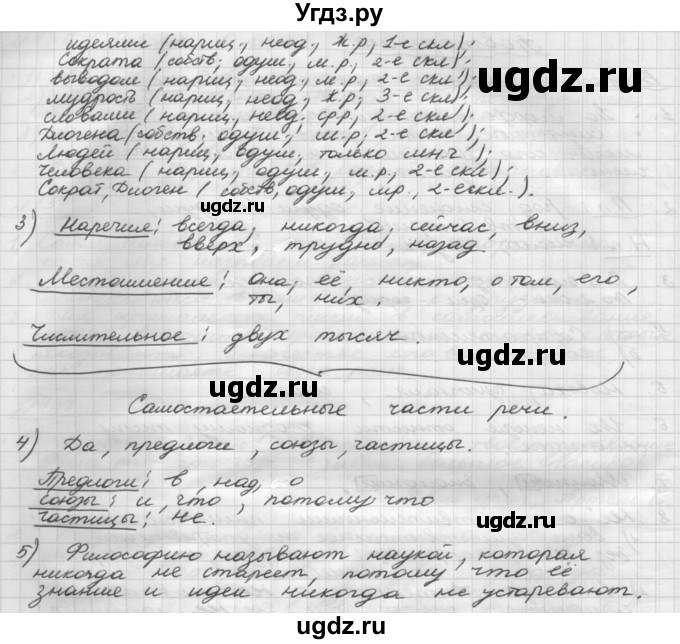 Угдз.ру
идеями (нариц., неод., ж.р., 1-е скл);
Сократа (собств., одуш., м.р., 2-е скл);
выводом (нариц., неод., м.р., 2-е скл);
мудрость (нариц., неод., ж.р., 3-е скл);
словами (нариц., неод., ср.р., 2-е скл);
Диогена (собств., одуш., м.р., 2-е скл);
людей (нариц., одуш., только мн.ч);
человека (нариц., одуш., м.р., 2-е скл);
Сократ, Диоген (собств., одуш., м.р., 2-ескл.).
ugdz.ru ugdz.ru
3) Наречия: всегда, никогда, сейчас, вниз,
вверх, трудно, назад.
Местоимение: она, её, никто, о том, его,
ты, них.
Числительное: двух тысяч.
ugdz.ru
ugdz.ru
Самостоятельные части речи.
4) Да, предлоги, союзы, частицы.
Предлоги: в, над, о
союзы: и, что, потому что
частицы: не.
ugdz.ru
5) Философию называют наукой, которая
никогда не стареет, потому что её
знание и идеи никогда не устаревают.
ugdz.ru
Угдз.ру